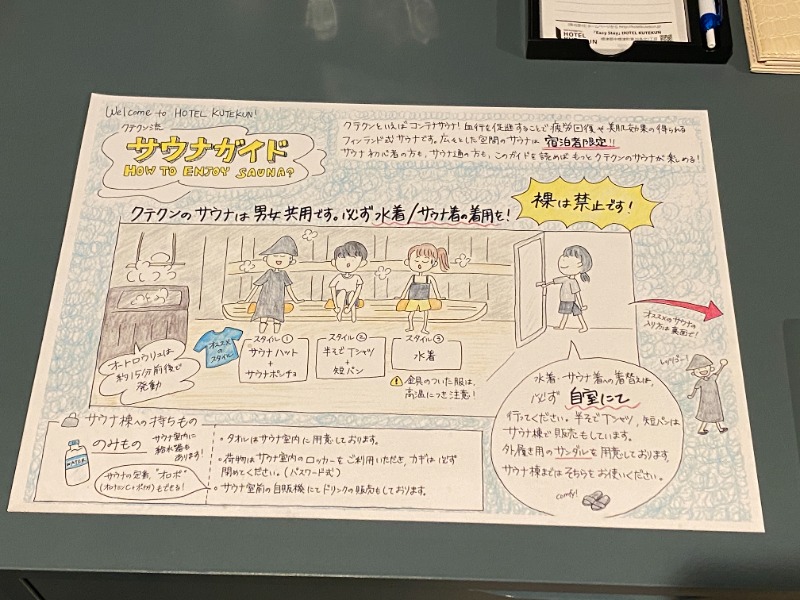 Welcome to HOTEL KUTEKUN!
クテクン流
サウナガイド
HOW TO ENJOY SAUNA?
クテクンといえばコンテナサウナ!血行を促進することで疲労回復や美肌効果の得られる
フィンランド式サウナです。広々とした空間のサウナは宿泊者限定!!
サウナ初心者の方も、サウナ通の方も、このガイドを読めばもっとクテクンのサウナが楽しめる!
クテクンのサウナは男女共用です。必ず水着/サウナ着の着用を!
裸は禁止です!
オートロウリュは
約15分前後で
発動
オススメの
スタイル
スタイル①
サウナハット
+
サウナポンチョ
スタイル②
半そでTシャツ
+
短パン
スタイル③
水着
金具のついた服は、
高温につき注意!
オススメのサウナの
入り方は裏面で!
水着・サウナ着への着替えは、
必ず自室にて
行ってください。半そでTシャツ、短パンは
サウナ棟で販売もしています。
外履き用のサンダルを用意しております
サウナ棟まではそちらをお使いください。
comfy!
サウナ棟への持ちもの
のみもの
サウナ室内に
給水器も
あります!
WATER
サウナの定番、"オロポ"
(オロナミンC+ポカリ)もできる!
・タオルはサウナ室内に用意しております。
・荷物はサウナ室内のロッカーをご利用いただき、カギは必ず
閉めてください。(パスワード式)
・サウナ室前の自販機にてドリンクの販売もしております。
HOTEL
「Easy Stay」HOTEL KUTEKUN